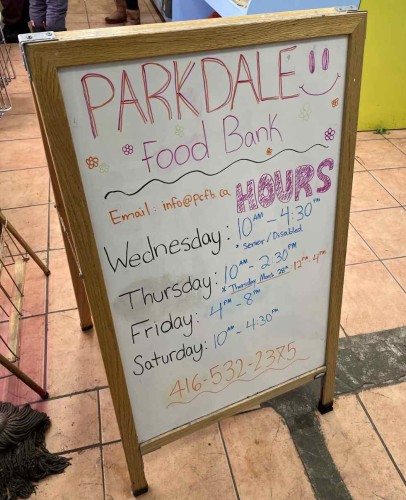 PARKDALE
Food Bank
Email: info@pcfb.ca
HOURS
Wednesday: 10AM - 4:30PM
* Senior/Disabled
Thursday: 10AM - 2:30PM
* Thursday March 28th 12PM-4PM
Friday: 4PM - 8PM
Saturday: 10AM - 4:30PM
416-532-2375